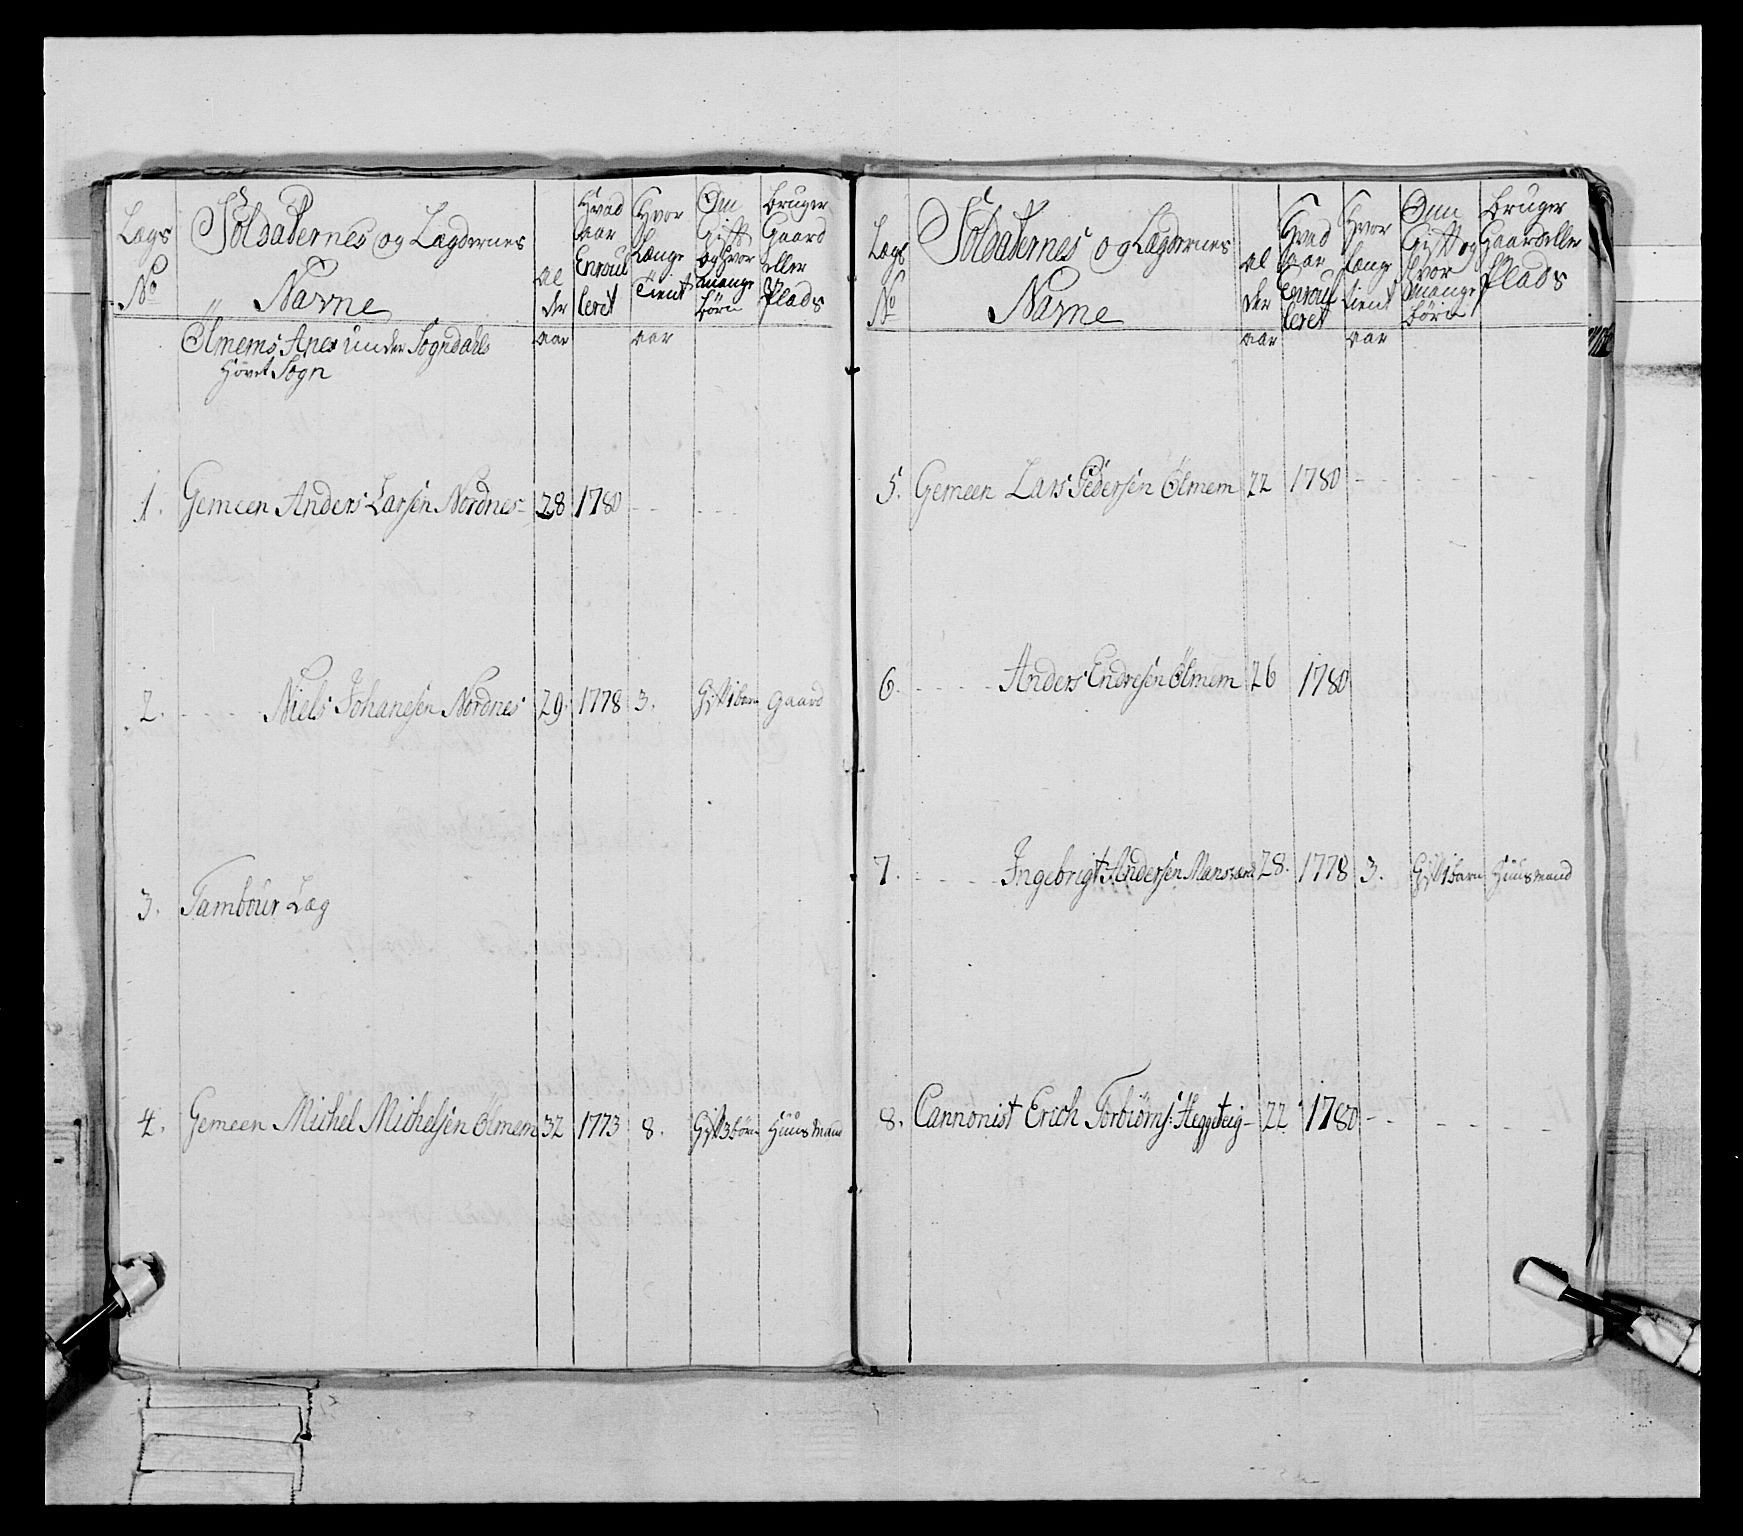 Lægs No
Soldaternes og Lægdernes Navne
Alder aar
Hvad aar Enroulleret
Hvor Længe Tient aar
Om Gift og hvor mange børn
bruger Gaard eller Plads
Ølmems Anex under Sogndahls
Hovet Sogn
1. Gemeen Anders Larsen Nordnes - 28 1780 - - - -
2. - - - Niels Johanesen Nordnes 29. 1778 3. Gift 1 barn Gaard
3. Tambour Læg
4. Gemeen Michel Michelsen Ølmem 32 1773 8. Gift 3 børn Huusmand
Lægs No
Soldaternes og Lægdernes Navne
Alder aar
Hvad aar Enroulleret
Hvor længe tient aar
Om Gift og hvor mange børn
bruger Gaard eller Plads
5. Gemeen Lars Pedersen Ølmem 22 1780 - - - -
6. - - - Anders Endresen Ølmem 26 1780
7. - - - Ingebrigt Andersen 28. 1778 3. Gift 1 barn Huusmand
8. Cannonist Erich Torbiørns: Heggsteig - 22 1780 - - - -